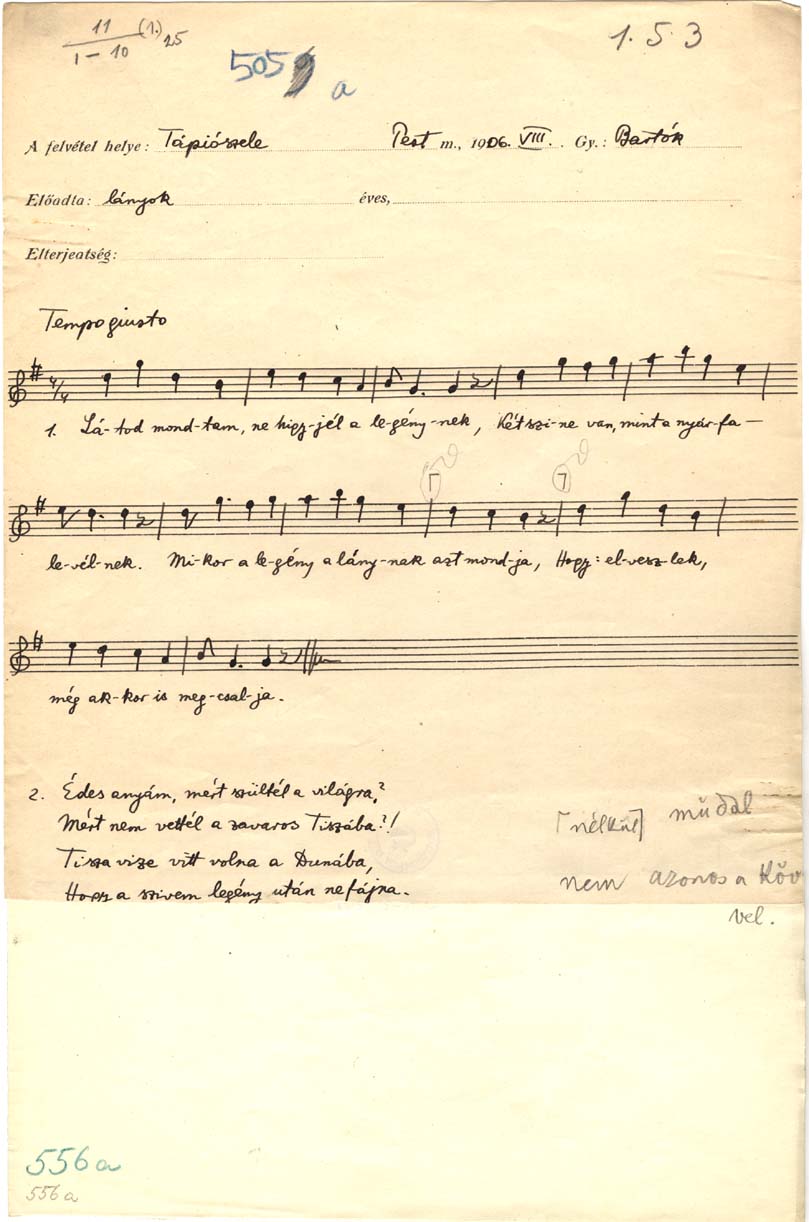 11 (1.) 25
1-10
1. 5 3
505 a
A felvétel helye: Tápiószele Pest m., 1906. VIII. Gy.: Bartók
Előadta: lányok éves,
Elterjeatség:
Tempo giusto
4/4
1. Lá-tod mond-tam, ne higy-jél a le-gény-nek, Két szi-ne van, mint a nyár-fa-
le-vél-nek. Mi-kor a le-gény a lány-nak azt mond-ja, Hogy: el-vesz-lek,
még ak-kor is meg-csal-ja.
2. Édes anyám, mért szültél a világra?
Mért nem vettél a zavaros Tiszába?!
Tisza vize vitt volna a Dunába,
Hogy a szivem legény után ne fájna.
⌈nélkül⌉ műdal
nem azonos a köv
vel.
556a
556a